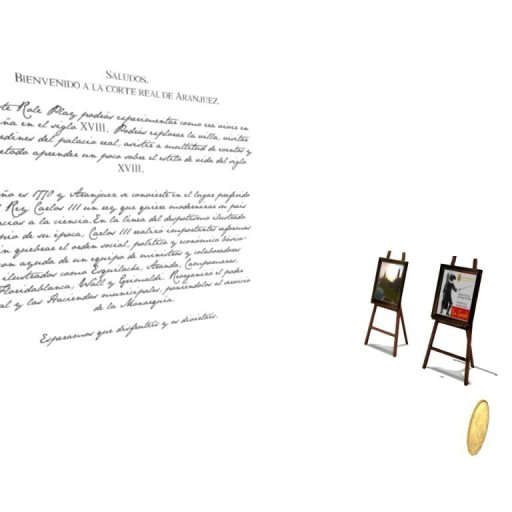 SALUDOS.
BIENVENIDO A LA CORTE REAL DE ARANJUEZ.
Role Play podrás experimentar como era vivir en
en el siglo XVIII. Podrás explorar la villa, visitar
del palacio real, asistir a multitud de eventos y
aprender un poco sobre el estilo de vida del siglo
XVIII.
es 1770 y Aranjuez se convierte en el lugar preferido
Rey Carlos III un rey que quiere modernizar su país
a la ciencia. En la línea del despotismo ilustrado
de su época, Carlos III realizó importantes reformas
quebrar el orden social, político y económico básico
ayuda de un equipo de ministros y colaboradores
ilustrados como Esquilache, Aranda, Campomanes,
Floridablanca, Wall y Grimaldi. Reorganizó el poder
y las Haciendas municipales, poniéndolas al servicio
de la Monarquía.
Esperamos que disfrutéis y os divirtáis.